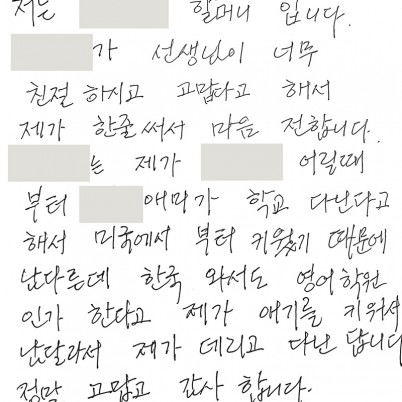 저는 할머니 입니다.
가 선생님이 너무
친절 하시고 고맙다고 해서
제가 한줄 써서 마음 전합니다.
는 제가 어릴때
부터 애미가 학교 다닌다고
해서 미국에서 부터 키웠기 때문에
남다른데 한국 와서도 영어학원
인가 한다고 제가 애기를 키워서
남달라서 제가 데리고 다닌 답니다
정말 고맙고 감사 합니다.